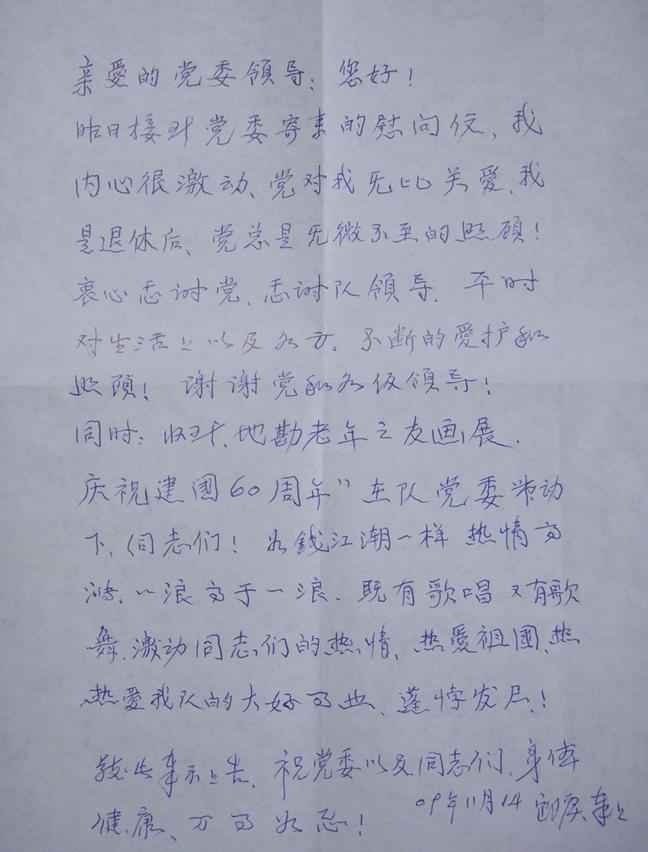 亲爱的党委领导：您好！
昨日接到党委寄来的慰问信，我
内心很激动、党对我无比关爱、我
是退休后、党总是无微不至的照顾！
衷心感谢党、感谢队领导、平时
对生活上以及各方、不断的爱护和
照顾！谢谢党和各级领导！
同时：收到、地勘老年之友画展、
庆祝建國60周年”在队党委带动
下、同志们！如錢江潮一样 热情高
涨、一浪高于一浪、既有歌唱又有歌
舞、激动同志们的热情、热爱祖國、热
热爱我队的大好事业、蓬勃发展！
敬告上告、祝党委以及同志们、身体
健康、万事如意！ 09年11月14